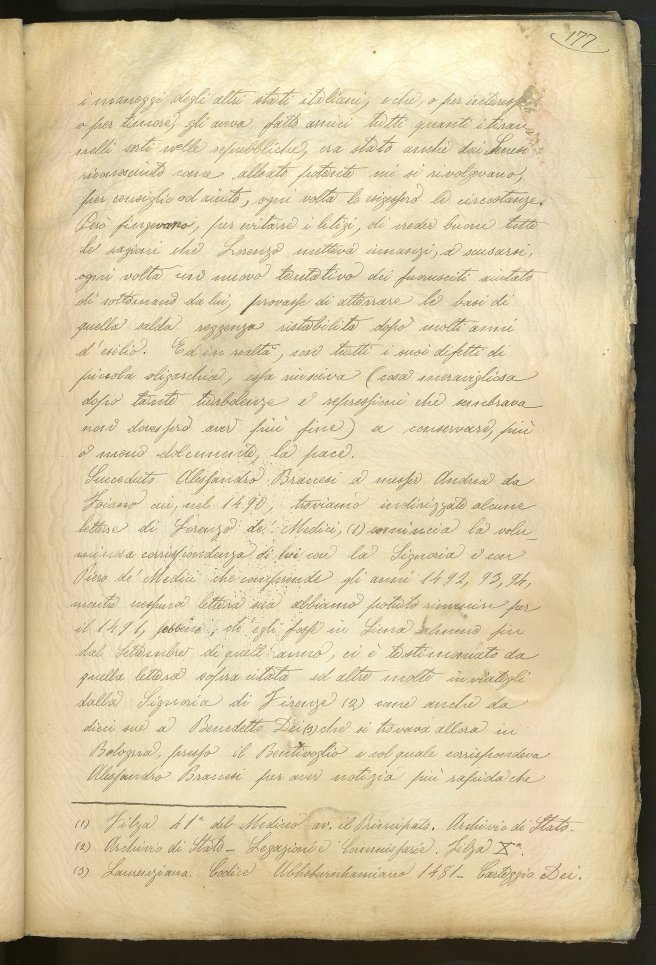 177
i maneggi degli altri stati italiani, e che, o per interesse
o per timore, gli aveva fatto amici tutti quanti i tiran
nelli sorti nelle repubbliche, era stato anche dai Senesi
riconosciuto come alleato potente cui si rivolgevano,
per consiglio od aiuto, ogni volta lo esigesse le circostanze.
Però fingevano, per evitare i litigi, di creder buone tutte
le ragioni che Lorenzo metteva innanzi, a scusarsi,
ogni volta un nuovo tentativo dei fuorusciti aiutato
di sottomano da lui, provasse di atterrare le basi di
quella salda reggenza ristabilita dopo molti anni
d'esilio. Ed in realtà, con tutti i suoi difetti di
piccola oligarchia, essa riusciva (cosa meravigliosa
dopo tante turbolenze e repressioni che sembrava
non dovessero aver più fine) a conservare, più
o meno dolcemente, la pace.
Succeduto Alessandro Braccesi a messer Andrea da
Foiano cui, nel 1490, troviamo indirizzate alcune
lettere di Lorenzo de' Medici, (1) comincia la volu-
minosa corrispondenza di lui con la Signoria e con
Piero de' Medici che comprende gli anni 1492, 93, 94,
mentre nessuna lettera sua abbiamo potuto rinvenire per
il 1491, sebbene, ch'egli fosse in Siena almeno fin
dal Settembre di quell'anno, ci è testimoniato da
quella lettera sopra citata ed altre molte inviategli
dalla Signoria di Firenze (2) come anche da
dieci sue a Benedetto Dei (3) che si trovava allora in
Bologna, presso il Bentivoglio e col quale corrispondeva
Alessandro Braccesi per aver notizia più rapida che
(1) Filza 41ª del Mediceo av. il Principato. Archivio di Stato.
(2) Archivio di Stato – Legazioni e Commissarie. Filza Xª.
(3) Laurenziana. Codice Ashburnhamiano 1481 – Carteggio Dei.